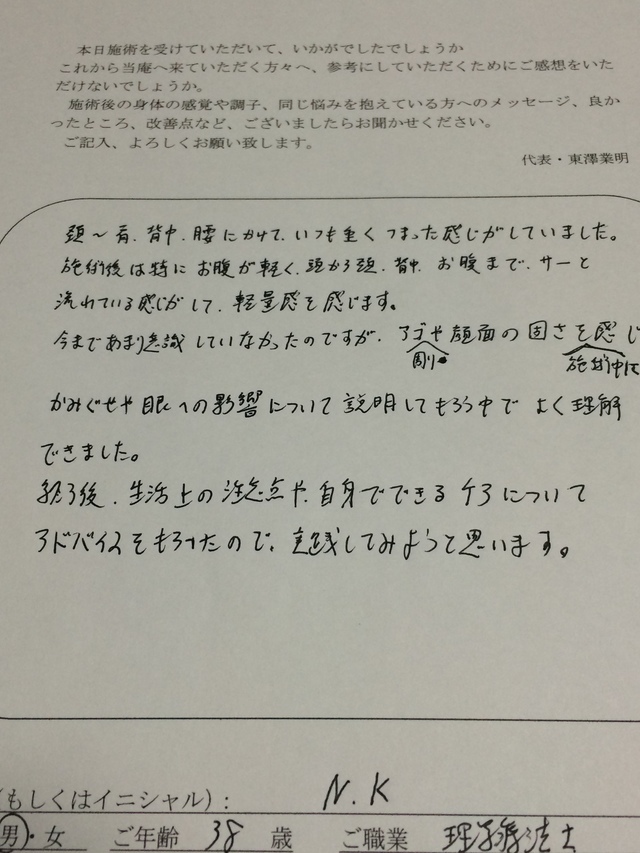 本日施術を受けていただいて、いかがでしたでしょうか
これから当庵へ来ていただく方々へ、参考にしていただくためにご感想をいた
だけないでしょうか。
施術後の身体の感覚や調子、同じ悩みを抱えている方へのメッセージ、良か
ったところ、改善点など、ございましたらお聞かせください。
ご記入、よろしくお願い致します。
代表・東澤業明
頭〜肩、背中、腰にかけて、いつも重くつまった感じがしていました。
施術後は特にお腹が軽く、頭から頭、背中、お腹まで、サーと
流れている感じがして、軽量感を感じます。
今まであまり意識していなかったのですが、アゴや顔面の固さを感じ
側 施術中に
かみぐせや眼への影響について説明してもらう中でよく理解
できました。
終了後、生活上の注意点や、自身でできるケアについて
アドバイスをもらったので、実践してみようと思います。
(もしくはイニシャル):N.K
男・女 ご年齢 38 歳 ご職業 理学療法士